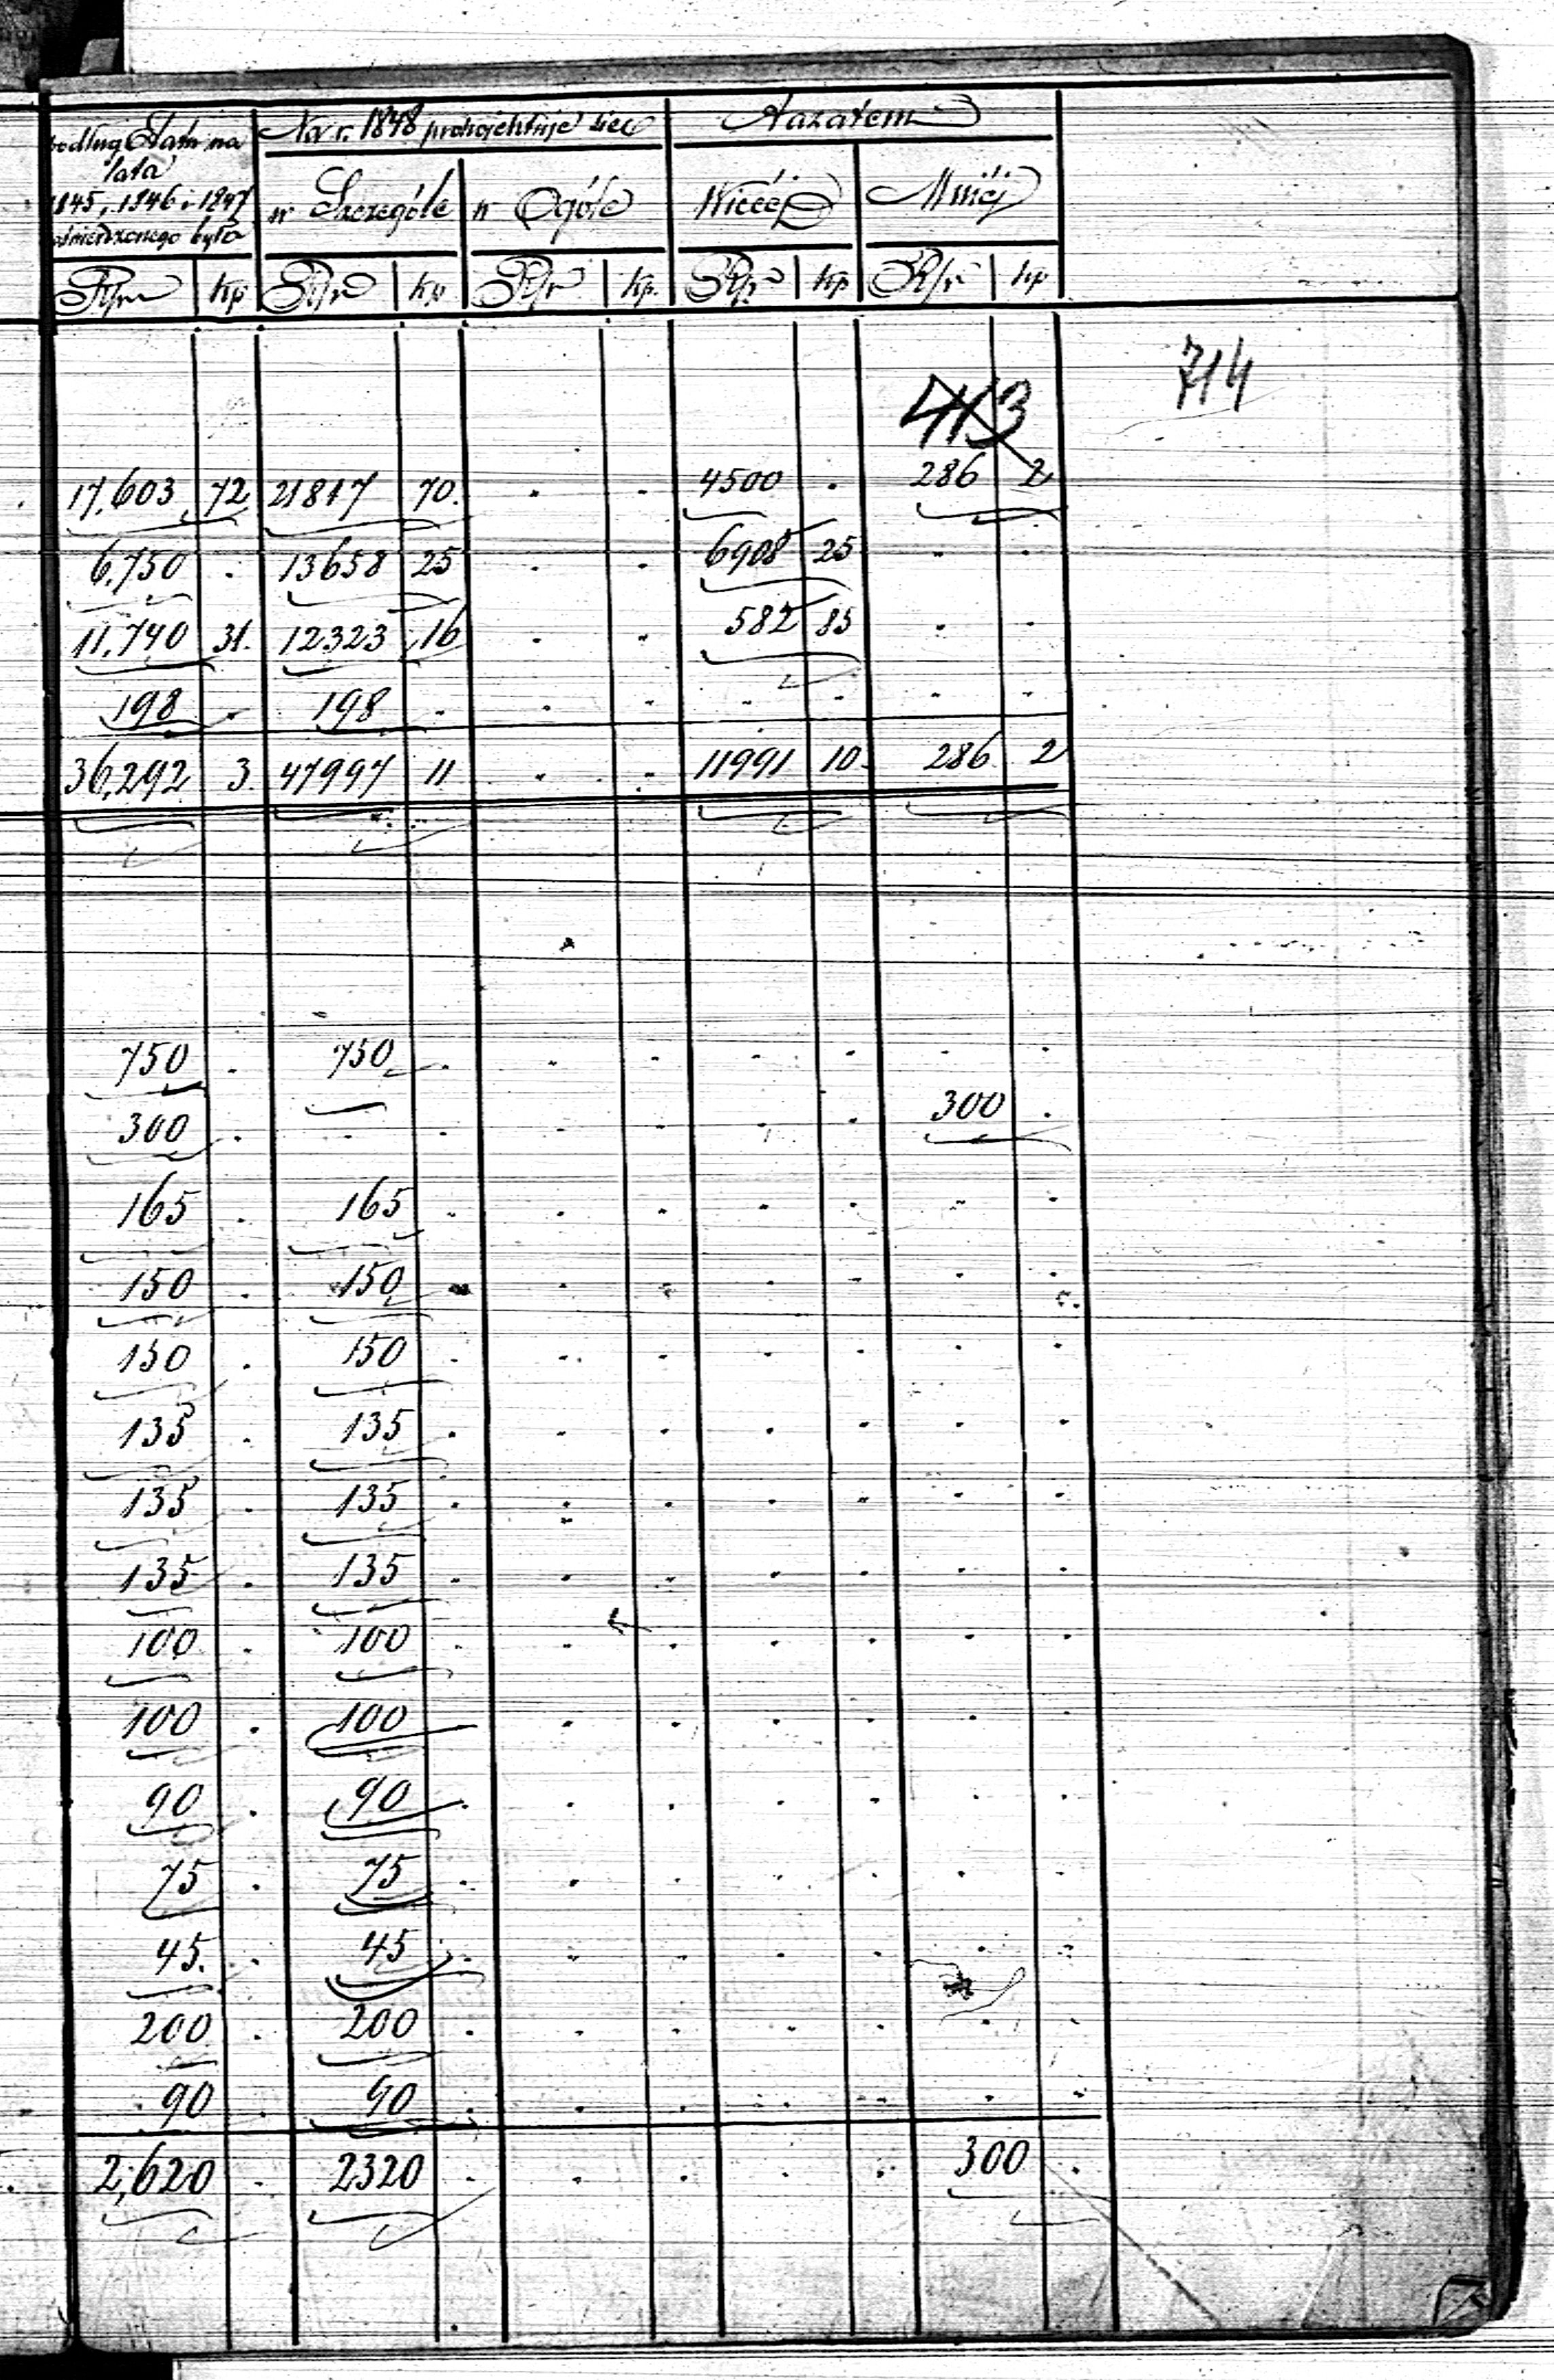 podług Etatu na Na r. 1848 projektuje się A zatem
lata
1845, 1846 i 1847 w Szczególe w Ogóle Więcéj Mniéj
zatwierdzonego było
Rsr kp Rsr kp Rsr kp. Rsr kp Rsr kp
714
413
17,603 72 21817 70. 4500 . 286 2
6,750 . 13658 25 6908 25
11,740 31. 12323 16 582 85
198 . 198 .
36,292 3. 47997 11 11991 10. 286 2
750 . 750 .
300 . . . 300 .
165 . 165 .
150 . 150 .
150 . 150 .
135 . 135 .
135 . 135 .
135 . 135 .
100 . 100 .
100 . 100 .
90 . 90 .
75 . 75 .
45. . 45 .
200 . 200 .
90 . 90 .
2,620 . 2320 . 300 .